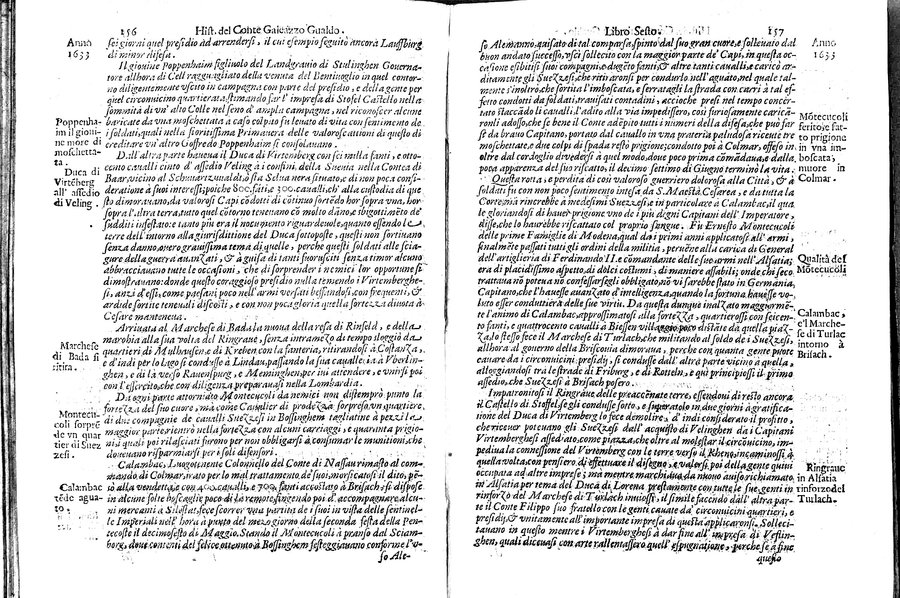 156 Hist. del Conte Galeazzo Gualdo.
Anno
1633
sei giorni quel presidio ad arrendersi, il cui esempio seguitò ancora Lauffburg
di minor difesa.
Il giovine Poppenhaim figliuolo del Landgravio di Stulinghen Governa-
tore allhora di Cell ragguagliato della venuta del Bentivoglio in quel contor-
no diligentemente uscito in campagna con parte del presidio, e della gente per
quel circonuicino quartierata, stimando far l'impresa di Stofel Castello nella
sommità di un' alto Colle nel seno d'ampla campagna, nel riconoscer alcune
baricate da vna moschettata a caso colpito fu leuato di vita con sentimento de
i soldati, quali nella fioritissima Primauera delle valorose attioni di questo di
creditauano vn' altro Goffredo Poppenhaim si consolauano.
Poppenha-
im il gioui-
ne more di
moschetta-
ta.
D'all'altra parte haueua il Duca di Virtemberg con sei milla fanti, e otto-
cento caualli cinto d'assedio Veling a i confini della Sueuia nella Contea di
Baar, vicino al Schwartzuualdo, o sia Selua nera situato, e di non poca consi-
deratione à suoi interessi; poiche 800. fāti, e 300. caualli, ch' alla custodia di que-
sto dimorauano, da valorosi Capi cōdotti di cōtinuo sortēdo hor sopra vna, hor
sopra l'altra terra, tutto quel cotorno teneuano cō molto dāno, e sbigottimēto de'
sudditi infestato: e tanto più era il nocumento riguardeuole, quanto essendo le
terre dell'intorno alla giurisdittione del Duca sottoposte, questi non sortiuano
senza danno, averò grauissima tema di quelle, perche questi soldati alle scia-
gure della guerra auanzati, & à guisa di tanti fuorusciti senza timor alcuno
abbracciauano tutte le occasioni, che di sorprender i nemici lor opportune si
dimostrauano: donde questo coraggioso presidio nulla temendo i Virtemberghe-
si, anzi d'essi, come paesani poco nell'armi versati beffandosi, con frequenti, &
ardide sortite tenenali discosti, e con non poca gloria quella fortezza diuota à
Cesare manteneua.
Duca di
Virtēberg
all' assedio
di Veling.
Arriuata al Marchese di Bada la nuoua della resa di Rinfeld, e della
marchia alla sua volta del Ringraue, senza intramezo di tempo sloggiò da
quartieri di Mulhausen, e di Kreben con la fanteria, ritirandosi à Costanza,
e d' indi per lo Lago si condusse à Lindau, passando la sua caualleria à Vberlin-
ghen, e di la verso Rauenspurg, e Memminghen, per iui attendere, e vnirsi poi
con l'essercito, che con diligenza preparauasi nella Lombardia.
Marchese
di Bada si
ritira.
Da ogni parte attorniato Montecucoli da nemici non distemprò punto la
fortezza del suo cuore, ma come Caualier di prodezza sorpreso vn quartiere
di due compagnie de caualli Suezzesi in Bossinghem tagliatine à pezzi la
maggior parte, rientrò nella fortezza con alcuni carriaggi, e quaranta prigio-
ni, i quali poi rilasciati furono per non obbligarsi à consumar le munitioni, che
doueuano risparmiarsi per i soli difensori.
Montecu-
coli sorpre-
de vn quar
tier di Suez
zesi.
Calambac, Luogotenente Colonnello del Conte di Nassau rimasto al com-
mando di Colmar, irato per lo mal trattamento de' suoi, morsicatosi il dito, pē-
sò alla vendetta, e con 400. caualli, e 700. fanti accostato à Brisach, si dispose
in alcune folte boscaglie poco di la remote, fingendo poi d' accompagnare alcu-
ni mercanti à Silestat, fece scorrer vna partita de i suoi in vista delle sentinel-
le Imperiali nell' hora à punto del mezo giorno della seconda festa della Pen-
tecoste il decimosesto di Maggio. Stando il Montecucoli à pranso dal Sciam-
borg, doue contenti del felice ottenuto à Bossinghem festeggiauano conforme l'v-
so Ale-
Calambac
tēde agua-
to.
Libro Sesto. 157
Anno
1633
so Alemanno, auisato di tal comparsa, spinto dal suo gran cuore, e solleuato dal
buon andato successo, uscì sollecito con la maggior parte de' Capi, in questa oc-
casione esibitisi suoi compagni, e dugēto fanti, & altre tanti caualli, e caricò ar-
ditamente gli Suezzesi, che ritiraronsi per condurlo nell'aguato, nel quale tal-
mente s'inoltrò, che sortita l'imboscata, e serratagli la strada con carri à tal ef-
fetto condotti da soldati, trauisati contadini, accioche presi nel tempo concer-
tato staccādo li caualli, l'adito alla via impedissero, così furiosamente caricā-
ronli adosso, che se bene il Conte adēpite tutti i numeri della difesa, che può far
se da brauo Capitano, portato dal cauallo in vna prateria paludosa riceuute tre
moschettate, e due colpi di spada restò prigione; condotto poi à Colmar, offeso in
oltre dal cordoglio diuedersi à quel modo, doue poco prima cōmādaua, e dalla
poca apparenza del suo riscatto, il decimo settimo di Giugno terminò la vita.
Mōtecucoli
ferito, e fat-
to prigione
in vna im-
boscata,
muore in
Colmar.
Questa rotta, e perdita di così valoroso guerriero dolorosa alla Città, & à
soldati fu con non poco sentimento intesa da S. Maestà Cesarea, e da tutta la
Corte, ma rincrebbe à medesimi Suezzesi, e in particolare à Calambac, il qua
le gloriandosi di hauer prigione vno de i più degni Capitani dell'Imperatore,
disse, che lo haurebbe riscattato col proprio sangue. Fu Ernesto Montecucoli
delle prime Famiglie di Modena, qual da i primi anni applicatosi all' armi,
finalmēte passati tutti gli ordini della militia, peruēne alla carica di General
dell'artiglieria di Ferdinando II. e comandante delle sue armi nell'Alsatia;
era di placidissimo aspetto, di dolci costumi, di maniere affabili; onde chi seco
trattaua nō poteua nō confessarsegli obbligato, nō vi sarebbe stato in Germania,
Capitano, che l'hauesse auanzato d'intelligenza, quando la fortuna hauesse vo-
luto esser condottiera delle sue virtù. Da questa dunque inalzato maggiormē-
te l'animo di Calambac, approssimatosi alla fortezza, quartieros si con seicen-
to fanti, e quattrocento caualli à Biessen villaggio poco distāte da quella piaz-
za, lo stesso fece il Marchese di Turlach, che militando al soldo de i Suezzesi,
allhora al gouerno della Brisconia dimoraua, perche con quanta gente potette
cauare da i circonuicini presidij, si condusse dall' altra parte vicino à quella,
alloggiandosi tra le strade di Friburg, e di Rotteln, e qui principiossi il primo
assedio, che Suezzesi à Brisach posero.
Qualità del
Mōtecucoli
Calambac,
e'l Marche-
se di Turlac
intorno à
Brisach.
Impatronitosi il Ringraue delle preaccennate terre, essendoui di resto ancora
il Castello di Stoffel, se gli condusse sotto, e superatolo in due giorni à gratifica-
tione del Duca di Virtemberg lo fece demolire, d' indi considerato il profitto,
che riceuer poteuano gli Suezzesi dall' acquisto di Velinghen da i Capitani
Virtemberghesi assediato, come piazza, che oltre al molestar il circōuicino, im-
pediua la connessione del Virtemberg con le terre verso il Rheno, incaminossi à
quella volta, con pensiero di effettuare il disegno, e valersi, poi della gente quini
occupata ad altre imprese; ma mentre marchiaua, da nuouo auiso richiamato
in Alsatia per tema del Duca di Lorena prestamente con tutte le sue genti in
rinforzo del Marchese di Turlach inuiossi, il simile facendo dall' altra par-
te il Conte Filippo suo fratello con le genti cauate da' circonuicini quartieri, e
presidij, & vnitamente all' importante impresa di questa applicaronsi. Solleci-
tauano in questo mentre i Virtemberghesi à dar fine all' impresa di Vestin-
ghen, quali diceuasi con arte rallentassero quell' espugnatione, perche se à fine
questo
Ringraue
in Alsatia
rinforzo del
Turlach.